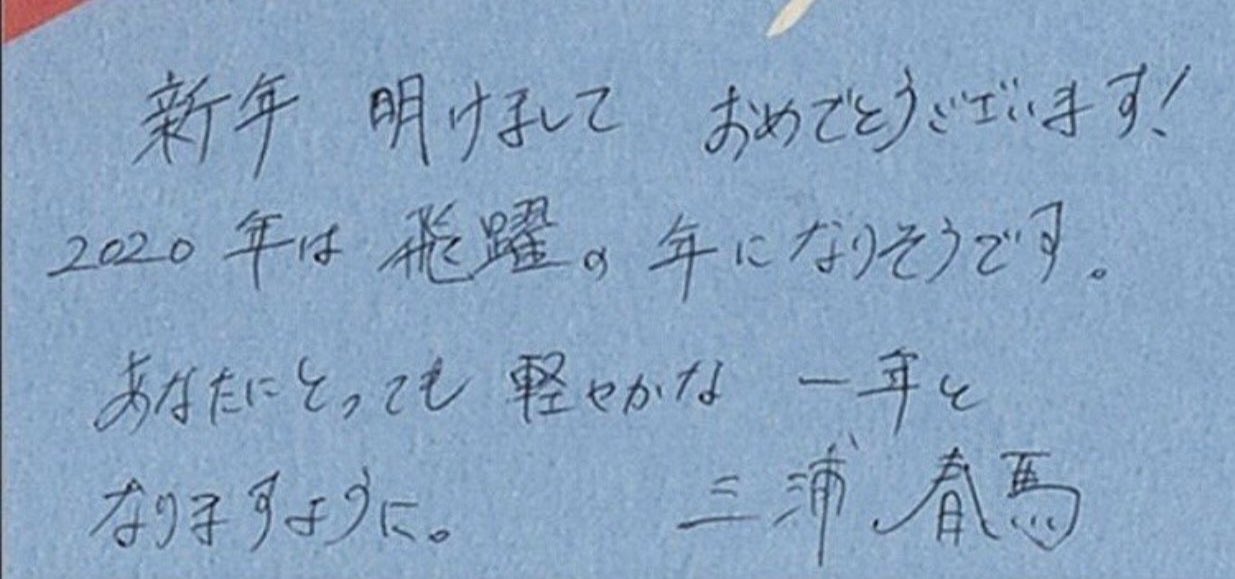 新年 明けまして おめでとうございます!
2020年は 飛躍の 年になりそうです。
あなたにとっても 軽やかな 一年と
なりますように。 三浦 春馬